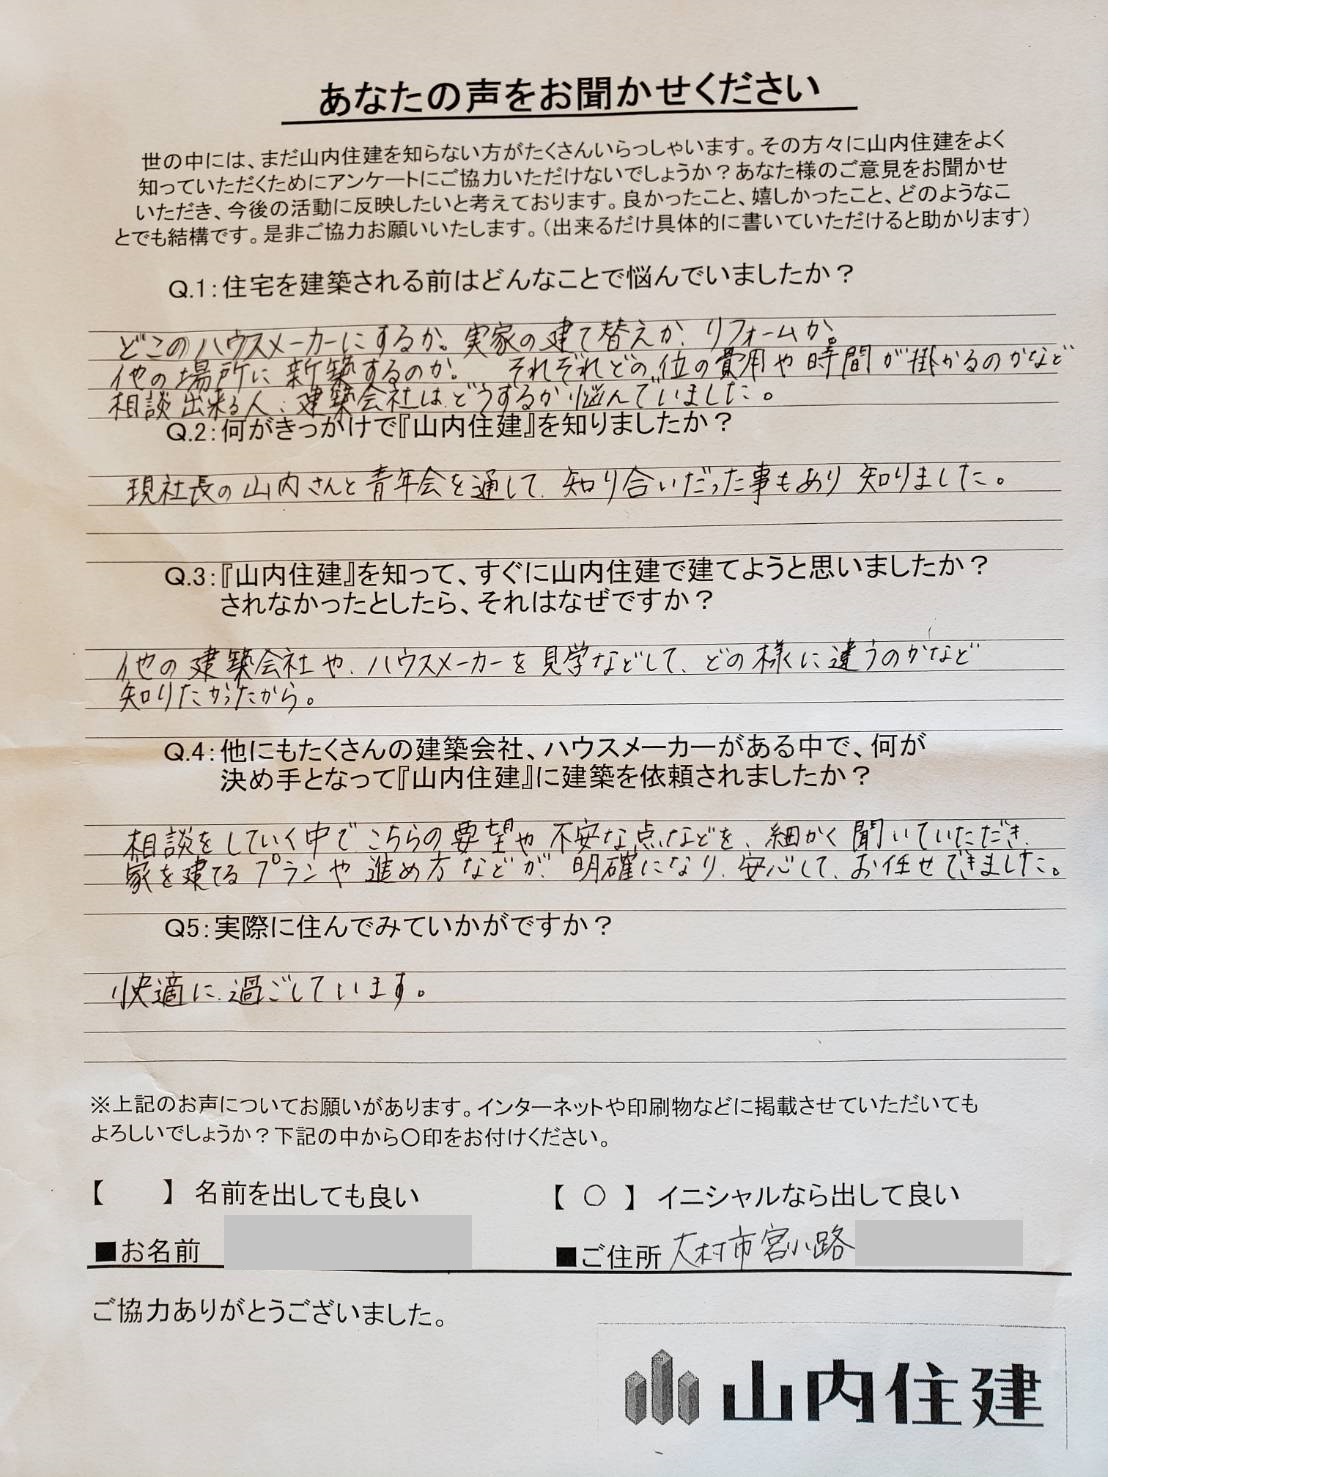 あなたの声をお聞かせください
世の中には、まだ山内住建を知らない方がたくさんいらっしゃいます。その方々に山内住建をよく
知っていただくためにアンケートにご協力いただけないでしょうか？あなた様のご意見をお聞かせ
いただき、今後の活動に反映したいと考えております。良かったこと、嬉しかったこと、どのようなこ
とでも結構です。是非ご協力お願いいたします。（出来るだけ具体的に書いていただけると助かります）
Q.1：住宅を建築される前はどんなことで悩んでいましたか？
どこのハウスメーカーにするか。実家の建て替えか、リフォームか。
他の場所に新築するのか。 それぞれどの位の費用や時間が掛かるのかなど
相談出来る人、建築会社はどうするか悩んでいました。
Q.2：何がきっかけで『山内住建』を知りましたか？
現社長の山内さんと青年会を通して、知り合いだった事もあり知りました。
Q.3：『山内住建』を知って、すぐに山内住建で建てようと思いましたか？
されなかったとしたら、それはなぜですか？
他の建築会社や、ハウスメーカーを見学などして、どの様に違うのかなど
知りたかったから。
Q.4：他にもたくさんの建築会社、ハウスメーカーがある中で、何が
決め手となって『山内住建』に建築を依頼されましたか？
相談をしていく中でこちらの要望や不安な点などを、細かく聞いていただき、
家を建てるプランや進め方などが、明確になり、安心して、お任せできました。
Q5：実際に住んでみていかがですか？
快適に過ごしています。
※上記のお声についてお願いがあります。インターネットや印刷物などに掲載させていただいても
よろしいでしょうか？下記の中から〇印をお付けください。
【　　】 名前を出しても良い 【 〇 】 イニシャルなら出して良い
■お名前 ■ご住所 大村市宮小路
ご協力ありがとうございました。
山内住建